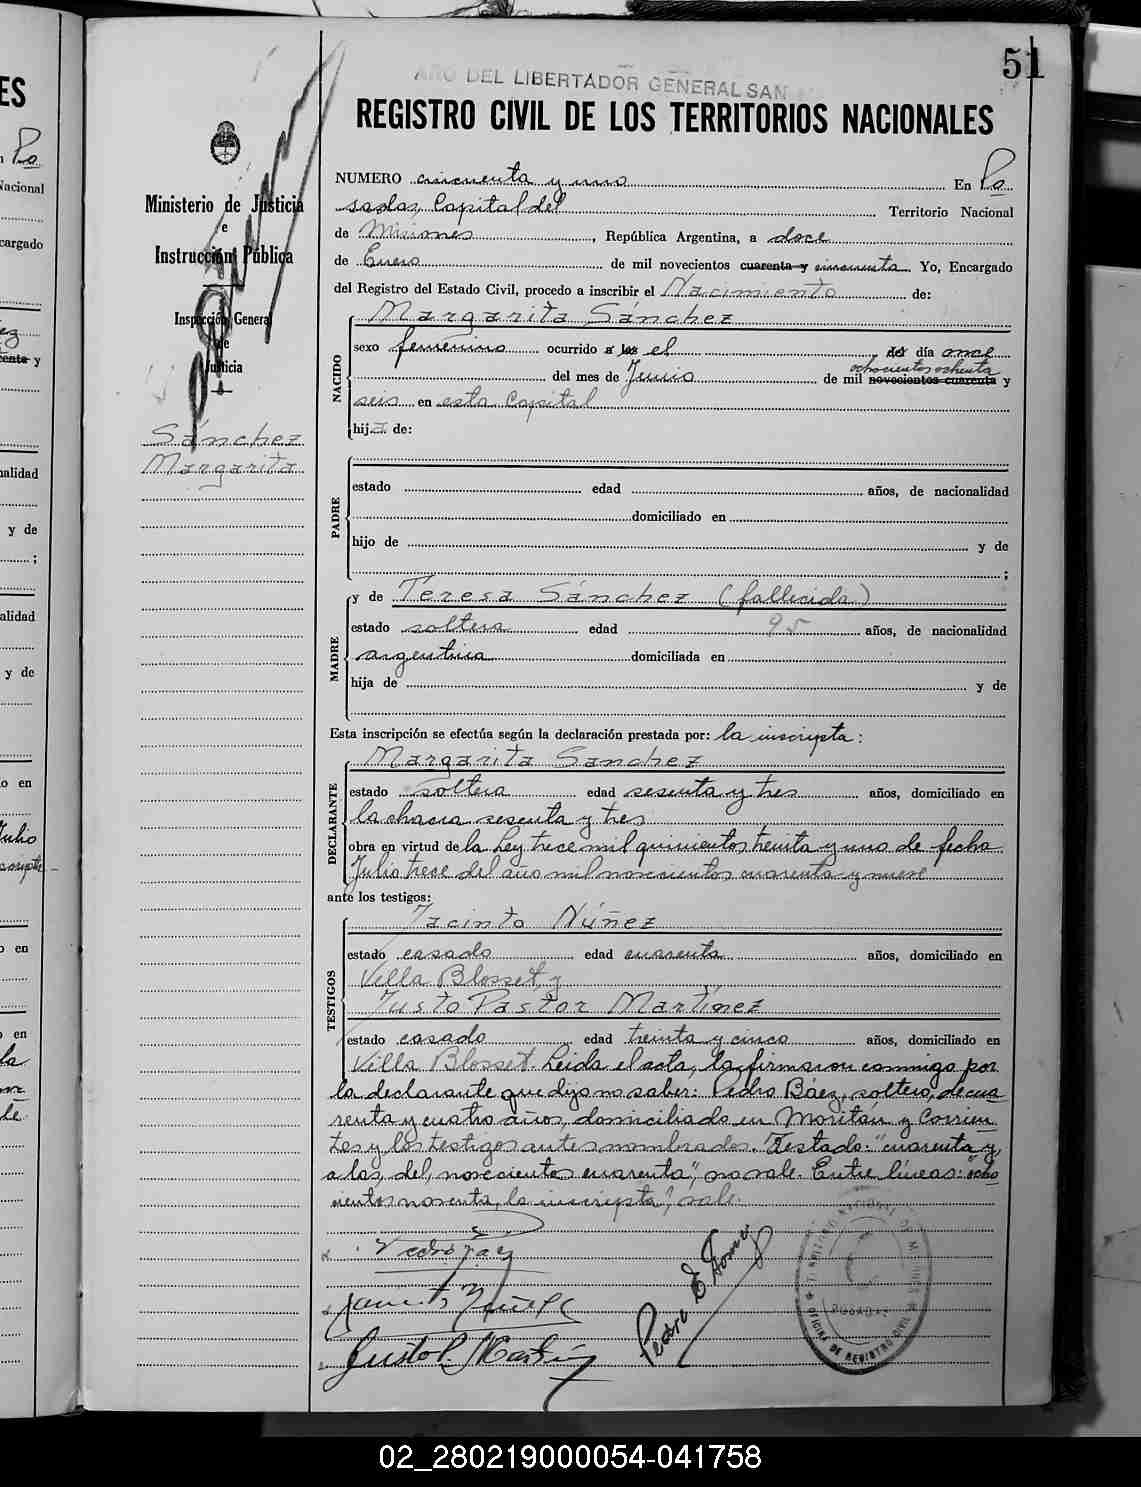 51
AÑO DEL LIBERTADOR GENERAL SAN
REGISTRO CIVIL DE LOS TERRITORIOS NACIONALES
Ministerio de Justicia
e
Instrucción Pública
Inspección General
de
Justicia
Sánchez
Margarita
NUMERO cincuenta y uno En Po
sadas, Capital del Territorio Nacional
de Misiones, República Argentina, a doce
de Enero de mil novecientos cuarenta y cincuenta. Yo, Encargado
del Registro del Estado Civil, procedo a inscribir el Nacimiento de:
NACIDO
Margarita Sánchez
sexo femenino ocurrido a las el del día once
ochocientos ochenta
del mes de Junio de mil novecientos cuarenta y
seis en esta Capital
hija de:
PADRE
estado edad años, de nacionalidad
domiciliado en
hijo de y de
;
MADRE
y de Teresa Sánchez (fallecida)
estado soltera edad 95 años, de nacionalidad
argentina domiciliada en
hija de y de
Esta inscripción se efectúa según la declaración prestada por: la inscripta:
DECLARANTE
Margarita Sanchez
estado soltera edad sesenta y tres años, domiciliado en
la chacra sesenta y tres
obra en virtud de la Ley trece mil quinientos treinta y uno de fecha
Julio trece del año mil novecientos cuarenta y nueve
ante los testigos:
TESTIGOS
Jacinto Núñez
estado casado edad cuarenta años, domiciliado en
Villa Blosset, y
Justo Pastor Martínez
estado casado edad treinta y cinco años, domiciliado en
Villa Blosset. Leida el acta, la firmaron conmigo por
la declarante que dijo no saber: Pedro Báez, soltero, de cua
renta y cuatro años, domiciliado en Moritán y Corrien
tes y los testigos antes nombrados. Testado: "cuarenta y,
a las, del, novecientos cuarenta", no vale. Entre líneas: "ocho
cientos noventa, la inscripta", vale.
Pedro Báez
Jacinto Núñez
Justo P. Martínez
Pedro E Gomez
OFICINA DE REGISTRO CIVIL
POSADAS
ES
Po
Nacional
cargado
ez
enta y
nalidad
y de
;
alidad
y de
o en
Julio
o en
o en
la
02_280219000054-041758